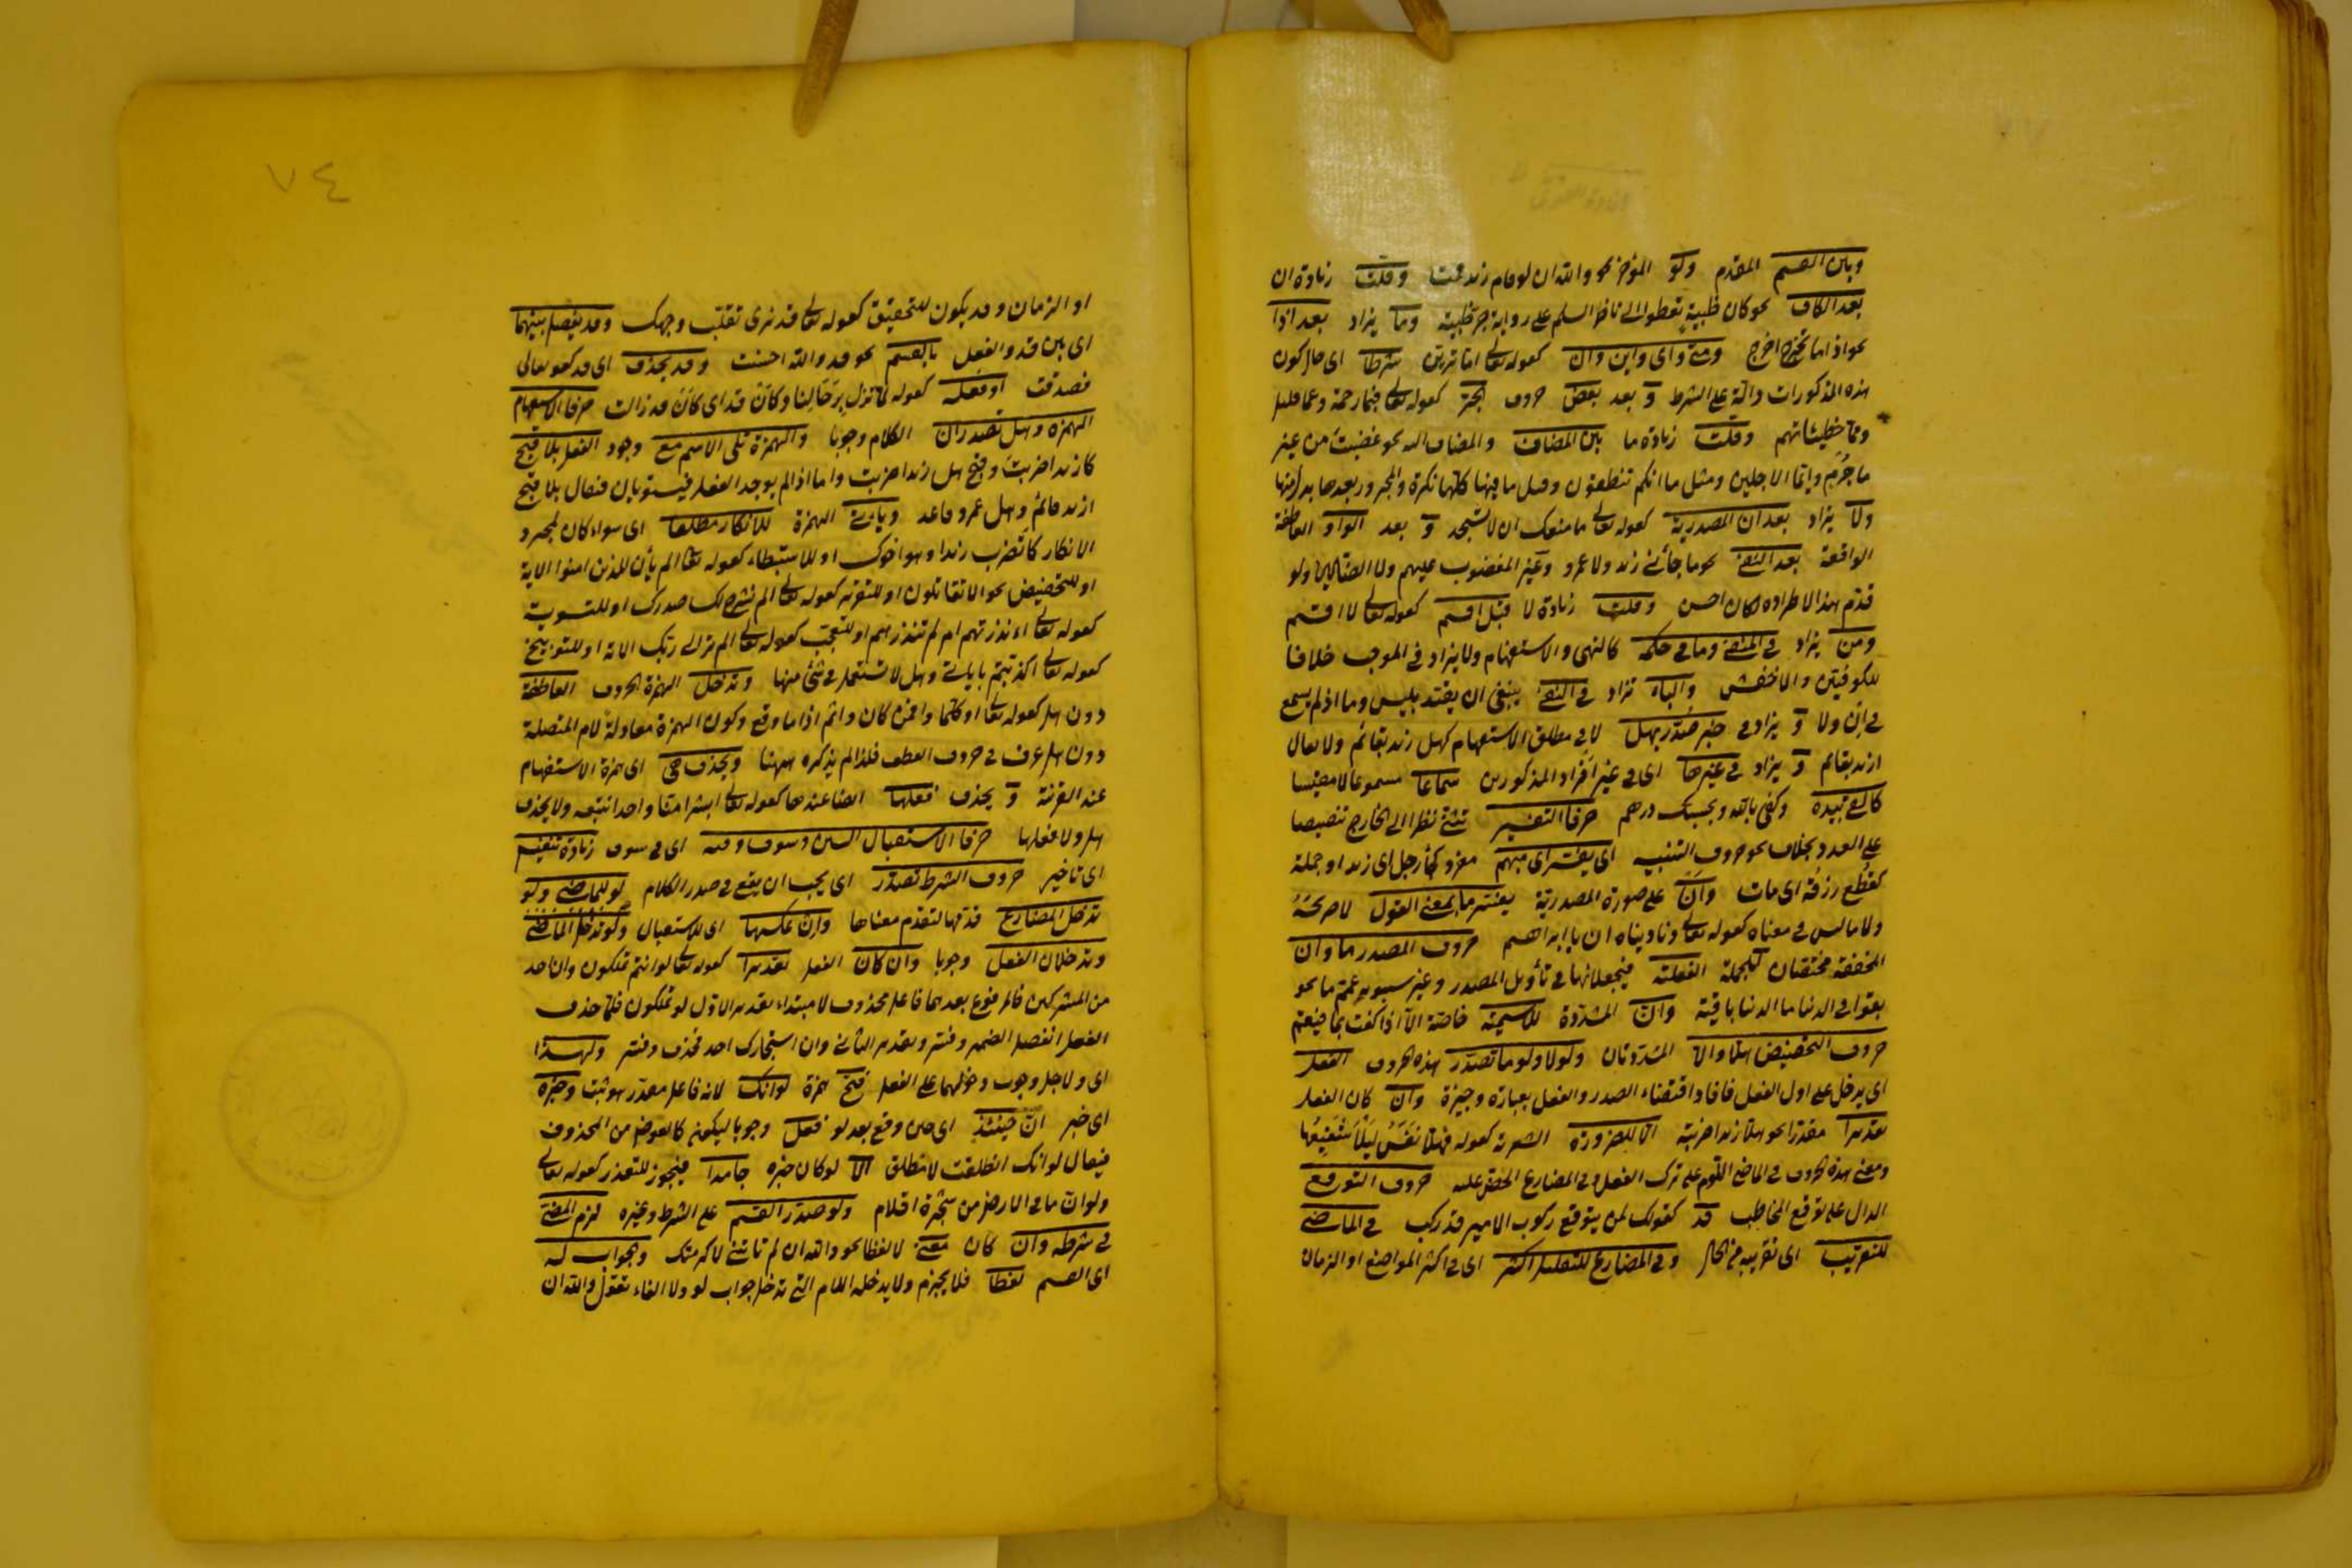 وبين القسم المقدم ولو المؤخر نحو والله ان لو قام زيد قمت وقلت زيادة ان
بعد الكاف نحو كان ظبيةٍ تعطوا الى ناضر السلم على رواية جر ظبية وما يزاد بعد اذا
نحو اذا ما تخرج اخرج ومتى واى واين وان كقوله تعالى اما ترين شرطا اى حال كون
هذه المذكورات دالة على الشرط و بعد بعض حروف الجر كقوله تعالى فبما رحمة وعما قليل
ومما خطيئاتهم وقلت زيادة ما بين المضاف والمضاف اليه نحو غضبت من غير
ما جُرمٍ وايّما الاجلين ومثل ما انكم تنطقون وقيل ما فيها كلها نكرة والمجرور بعدها بدل منها
ولا يزاد بعد ان المصدرية كقوله تعالى ما منعك ان لا تسجد و بعد الواو العاطفة
الواقعة بعد النفى نحو ما جائنى زيد ولا عمرو وغير المغضوب عليهم ولا الضالين ولو
قدم هذا لاطراده لكان احسن وقلت زيادة لا قبل اقسم كقوله تعالى لا اقسم
ومن يزاد فى المنفى وما فى حكمه كالنهى والاستفهام ولا يزاد فى الموجب خلافا
للكوفيين والاخفش والباء تزاد فى النفى ينبغى ان يقيد بليس وما اذ لم يسمع
فى ان ولا و يزاد فى خبر صُدّر بهل لا فى مطلق الاستفهام كهل زيد بقائم ولا يقال
ازيد بقائم و يزاد فى غيرها اى فى غير افراد المذكورين سماعا مسموعا لا مقيسا
كالقى بيده وكفى بالله وبحسبك درهم حرفا التفسير تثنى نظرا الى الخارج تنصيصا
على العدد بخلاف نحو حروف التنبيه اى يفسر اى مبهم مفرد كجاء رجل اى زيد او جملة
كقطع رزقه اى مات وأن على صورة المصدرية يفسر ما بمعنى القول لا صريحه
ولا ما ليس فى معناه كقوله تعالى وناديناه ان يا ابراهيم حروف المصدر ما وان
المخففة مختصان بالجملة الفعلية فيجعلانها فى تأويل المصدر وغير سيبويه عمم ما نحو
بقوا فى الدنيا ما الدنيا باقية وانّ المشددة للاسمية خاصة الا اذا كفت بما فيعم
حروف التحضيض هلا والّا المشددتان ولولا ولوما تصدر هذه الحروف الفعل
اى يدخل على اول الفعل فافاد اقتضاء الصدر والفعل بعبارة وجيزة وان كان الفعل
تقديرا مقدرا نحو هلا زيدا ضربته الا لضرورة الشعر كقوله فهلا نفس ليلى شفيعها
ومعنى هذه الحروف فى الماضى اللوم على ترك الفعل وفى المضارع الحض عليه حروف التوقع
الدال على توقع المخاطب قد كقولك لمن يتوقع ركوب الامير قد ركب فى الماضى
للتقريب اى تقريبه من الحال وفى المضارع للتقليل اكثر اى فى اكثر المواضع او الزمان
٧٤
او الزمان وقد يكون للتحقيق كقوله تعالى قد نرى تقلب وجهك وقد يفصل بينهما
اى بين قد والفعل بالقسم نحو قد والله احسنت وقد يحذف اى قد كقوله تعالى
فصدقت او فعله كقوله لما تزل برحالنا وكأن قد اى كأن قد زالت حرفا الاستفهام
الهمزة وهل تصدران الكلام وجوبا والهمزة تلى الاسم مع وجود الفعل بلا قبح
كازيدا ضربت وقبح هل زيدا ضربت واما اذا لم يوجد الفعل فيستويان فيقال بلا قبح
ازيد قائم وهل عمرو قاعد ويأتى الهمزة للانكار مطلقا اى سواء كان لمجرد
الانكار كاتضرب زيدا وهو اخوك او للاستبطاء كقوله تعالى الم يأن للذين امنوا الاية
او للتحضيض نحو الا تقاتلون او للتقرير كقوله تعالى الم نشرح لك صدرك او للتسوية
كقوله تعالى ءانذرتهم ام لم تنذرهم او للتعجب كقوله تعالى الم تر الى ربك الاية او للتوبيخ
كقوله تعالى اكذبتم باياتى وهل لا تستعمل فى شئ منها وتدخل الهمزة الحروف العاطفة
دون هل كقوله تعالى او كلما وافمن كان واثم اذا ما وقع وكون الهمزة معادلة لام المتصلة
دون هل عرف فى حروف العطف فلذا لم يذكره ههنا ويحذف هى اى همزة الاستفهام
عند القرينة و يحذف فعلها ايضا عندها كقوله تعالى ابشرا منا واحدا نتبعه ولا يحذف
هل ولا فعلها حرفا الاستقبال السين وسوف وفيه اى فى سوف زيادة تنفيس
اى تاخير حروف الشرط تصدر اى يجب ان يقع فى صدر الكلام لو للماضى ولو
تدخل المضارع قدمها لتقدم معناها وان عكسها اى للاستقبال ولو تدخل الماضى
وتدخلان الفعل وجوبا وان كان الفعل تقديرا كقوله تعالى لو انتم تملكون وان احد
من المشركين فالمرفوع بعدهما فاعل محذوف لا مبتداء تقدير الاول لو تملكون فلما حذف
الفعل انفصل الضمير وفسر وتقدير الثانى وان استجارك احد فحذف وفسر ولهذا
اى ولاجل وجوب دخولهما على الفعل فتح همزة لو انك لانه فاعل مقدر هو ثبت وخبره
اى خبر ان حينئذ اى حين وقع بعد لو فعل وجوبا ليكون كالعوض من المحذوف
فيقال لو انك انطلقت لا منطلق الا لو كان خبره جامدا فيجوز للتعذر كقوله تعالى
ولو ان ما فى الارض من شجرة اقلام ولو صدر القسم على الشرط وغيره لزم المضى
فى شرطه وان كان معنى لا لفظا نحو والله ان لم تأتنى لاكرمتك والجواب له
اى القسم لفظا فلا يجزم ولا يدخله اللام التى تدخل جواب لو ولا الفاء تقول والله ان